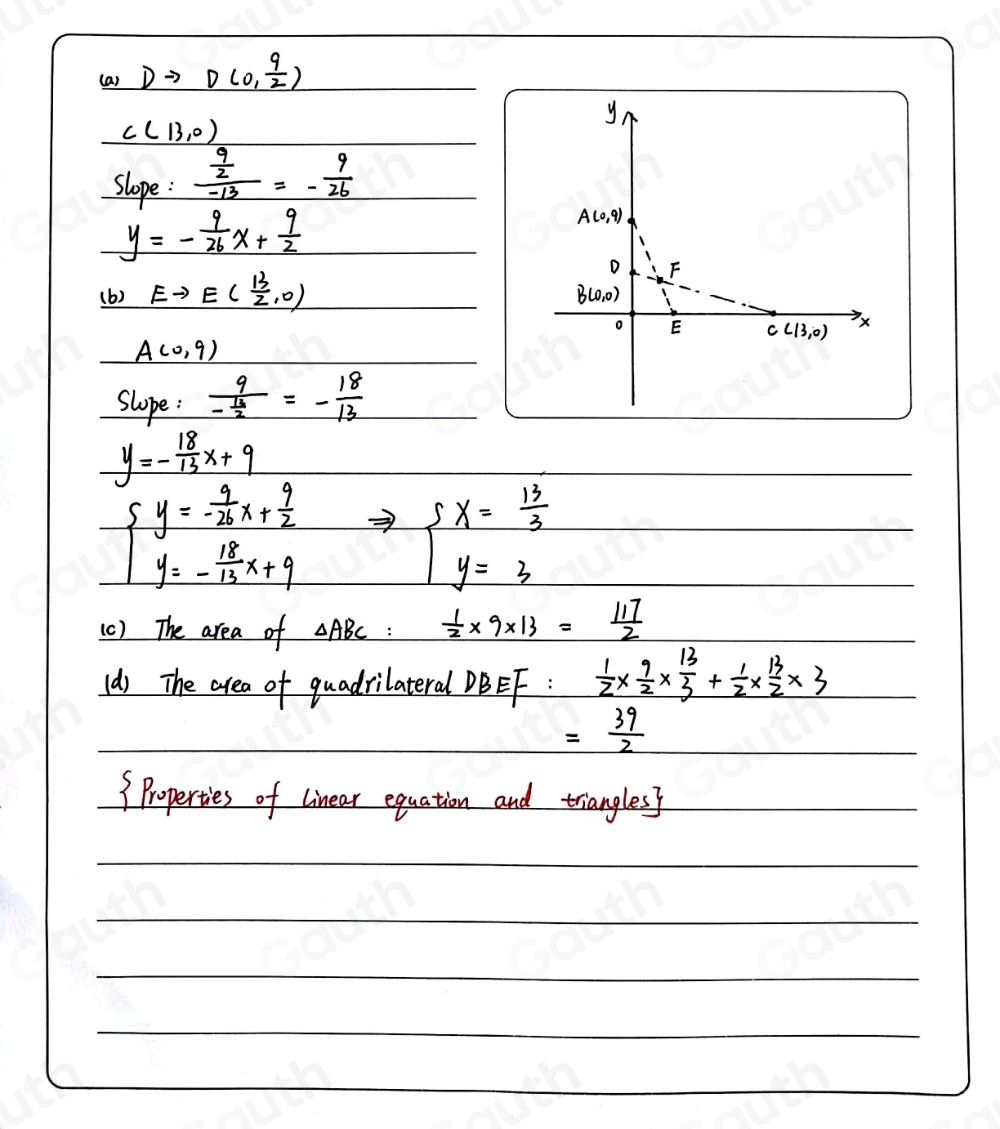 (a) D → D(0, 9/2)
C(13,0)
Slope: (9/2)/(-13) = -9/26
y = -9/26 x + 9/2
(b) E → E(13/2, 0)
A(0,9)
Slope: 9/(-13/2) = -18/13
y = -18/13 x + 9
{ y = -9/26 x + 9/2 ⇒ { x = 13/3
y = -18/13 x + 9 y = 3
(c) The area of △ABC: 1/2 × 9 × 13 = 117/2
(d) The area of quadrilateral DBEF: 1/2 × 9/2 × 13/3 + 1/2 × 13/2 × 3
= 39/2
{Properties of linear equation and triangles}
y
A(0,9)
D
F
B(0,0)
0
E
C(13,0)
x
Gauth